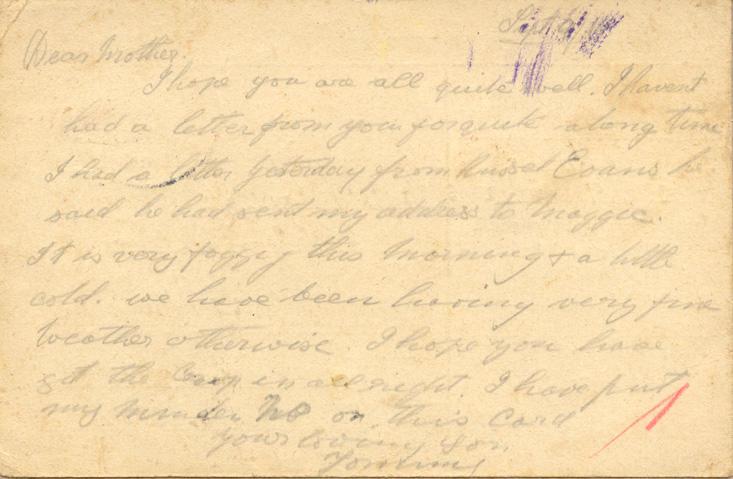 Sept 9
Dear Mother
I hope you are all quite well. I havent
had a letter from you for quite a long time
I had a letter Yesterday from Russel Evans he
said he had sent my address to Maggie.
It is very foggy this Morning & a little
cold. we have been having very fine
Weather otherwise. I hope you have
got the Crop in all right. I have put
my No on this Card
Your loving Son
Tommy